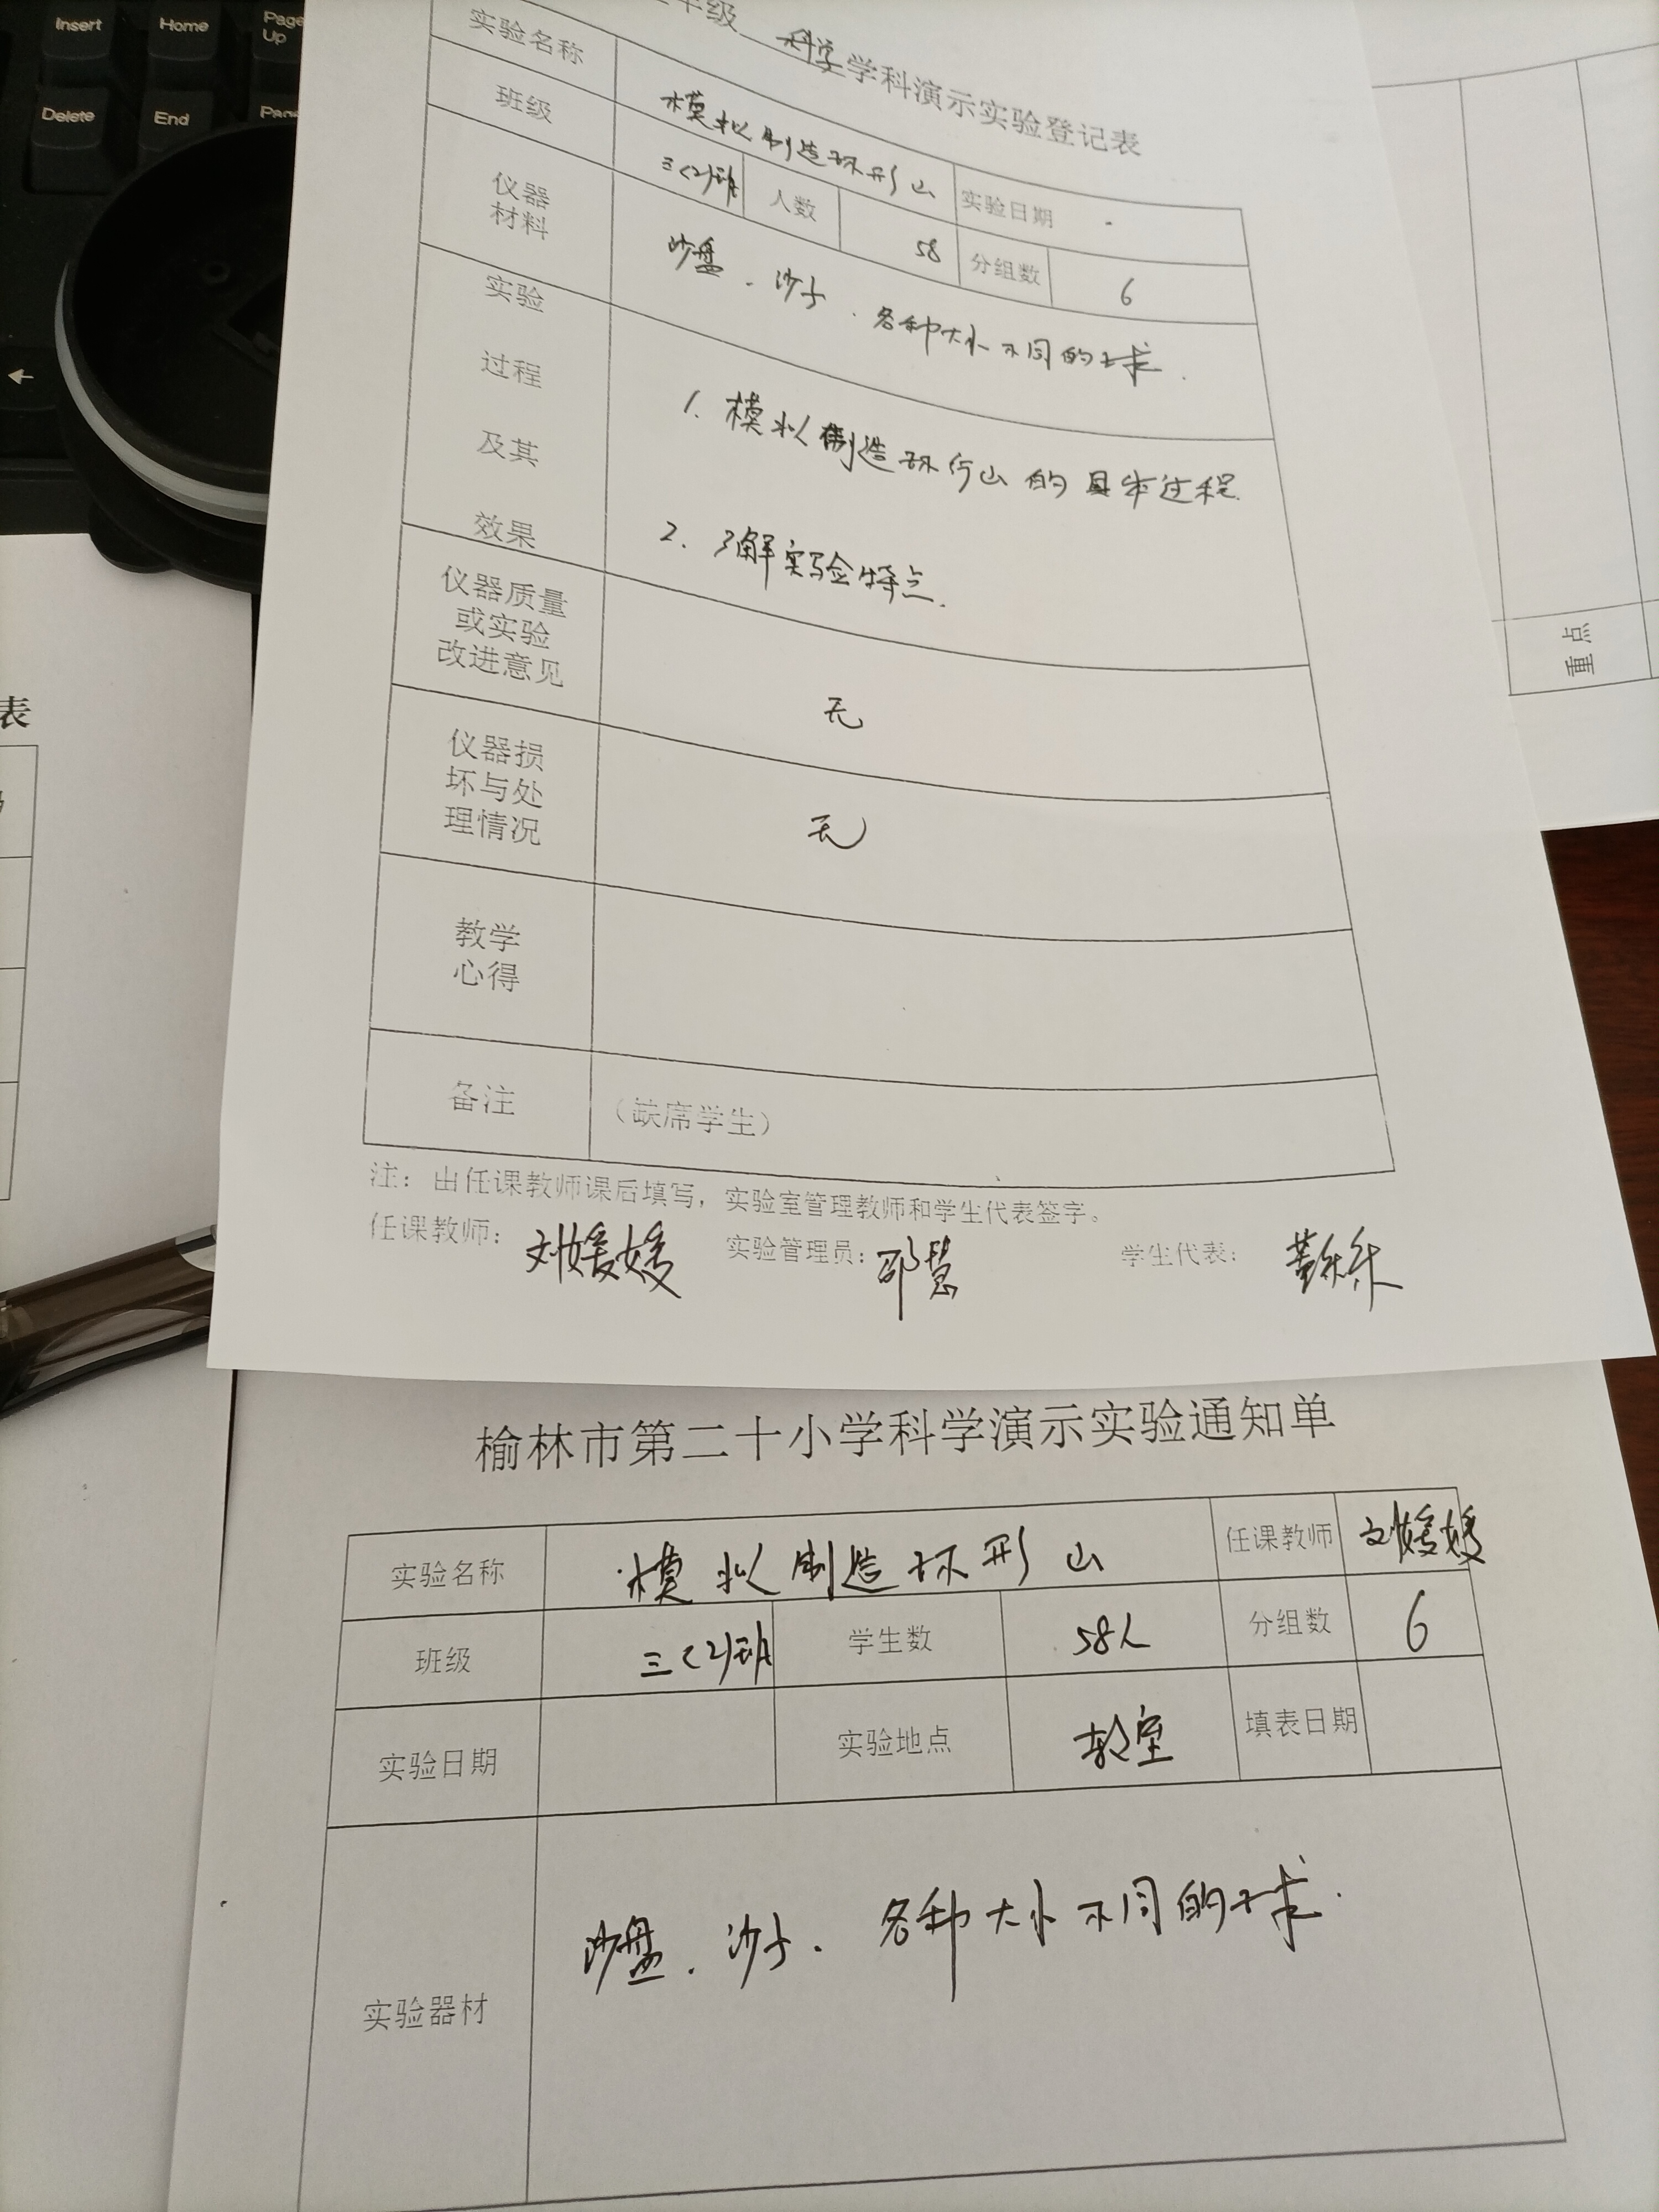 Insert Home Page Up
Delete End
年级 科学 学科演示实验登记表
实验名称 模拟制造环形山 实验日期
班级 三(2)班 人数 58 分组数 6
仪器材料 沙盘、沙子、各种大小不同的球.
实验过程及其效果
1. 模拟制造环行山的具体过程.
2. 了解实验特点.
仪器质量或实验改进意见 无
仪器损坏与处理情况 无
教学心得
备注 (缺席学生)
注: 由任课教师课后填写, 实验室管理教师和学生代表签字。
任课教师: 刘媛媛 实验管理员: 邵慧 学生代表:
表
重点
榆林市第二十小学科学演示实验通知单
实验名称 模拟制造环形山 任课教师 刘媛媛
班级 三(2)班 学生数 58人 分组数 6
实验日期 实验地点 教室 填表日期
实验器材 沙盘、沙子、各种大小不同的球.